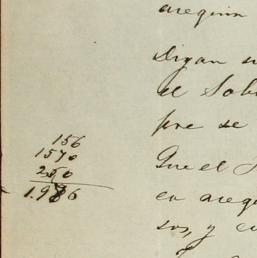 arequin
Digan u
el Sobr
pre se
156
1570
250
1.986
Que el
en areq
sos, y c